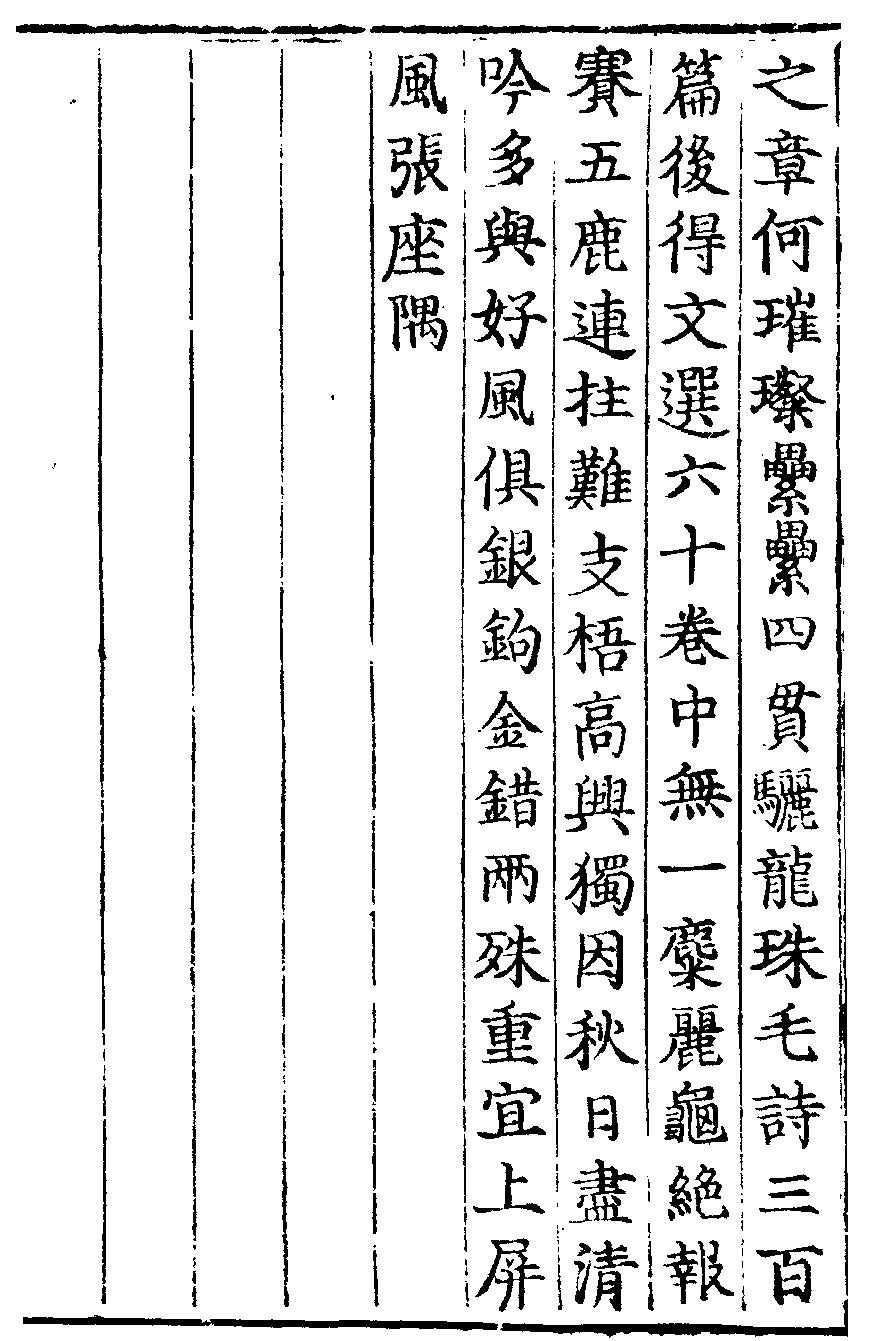 之章何璀璨纍纍四貫驪龍珠毛詩三百
篇後得文選六十卷中無一麋麗龜絶報
賽五鹿連拄難支梧高興獨因秋日盡清
吟多與好風俱銀鉤金錯兩殊重宜上屏
風張座隅